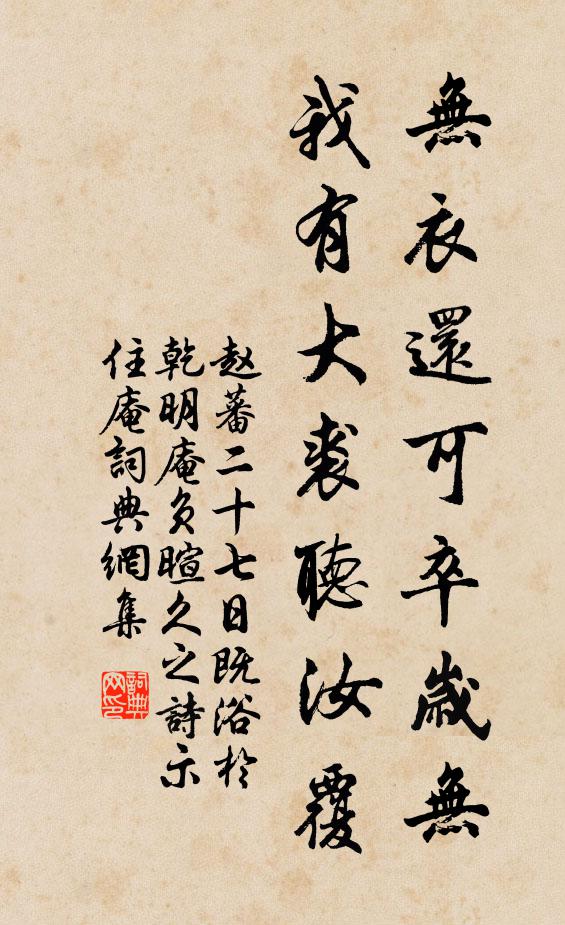 無衣還可卒歲無
我有大裘聽汝覆
赵蕃二十七日既浴於
乾明庵负暄久之詩示
住庵詞典網集
詞典网印